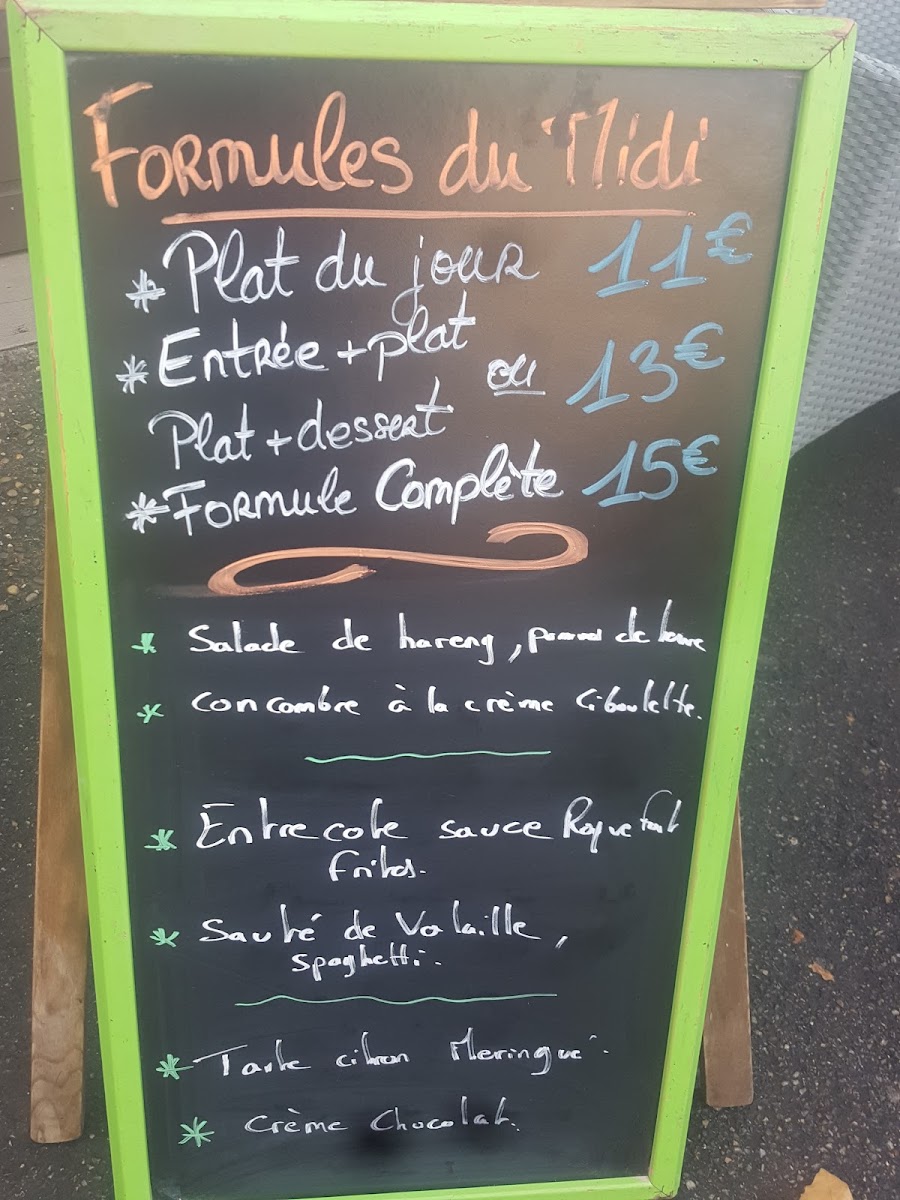 Formules du Midi
* Plat du jour 11€
* Entrée + plat
ou 13€
Plat + dessert
* Formule Complète 15€
* Salade de hareng, pommes de terre
* Concombre à la crème Ciboulette.
* Entrecote sauce Roquefort
frites.
* Sauté de Volaille,
spaghetti.
* Tarte citron Meringué.
* Crème Chocolat.